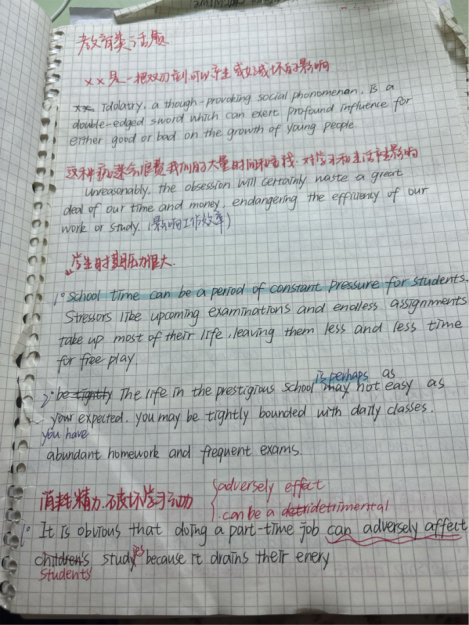 教育类话题
xx是一把双刃剑,可以产生或好或坏的影响
xx Idolatry, a though-provoking social phonomenan, is a
double-edged sword which can exert profound influence for
either good or bad on the growth of young people
这种 会浪费我们的大量时间和金钱,对学习和生活产生影响
Unreasonably, the obsession will certainly waste a great
deal of our time and money, endangering the efficiency of our
work or study. (影响工作效率)
学生时期压力很大.
1° School time can be a period of constant pressure for students.
Stressors like upcoming examinations and endless assignments
take up most of their life, leaving them less and less time
for free play
is perhaps
2° be tightly The life in the prestigious school may not easy as as
your expected. you may be tightly bounded with daily classes.
you have
abundant homework and frequent exams.
adversely effect
消耗精力,破坏学习动力
can be a detrimental
1° It is obvious that doing a part-time job can adversely affect
children's studies because it drains their enery
students